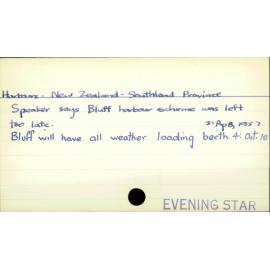 Harbours - New Zealand - Southland Province
Speaker says Bluff harbour scheme was left
too late. 3: Ap 8, 1957
Bluff will have all weather loading berth 4: Oct. 10
EVENING STAR